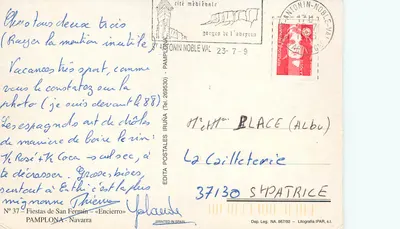 (Rayer la mention inutile)
Vacances très sport, comme
vous le constatez sur la
photo (je suis devant le 88)
Les espagnols ont de drôles
de manière de boire le vin:
K Rosé + K Coca + sulse, à
te décrasser. Grosses bises,
surtout à
c'est le plus
mignonne Thierry
Yolande
N° 37 Fiestas de San Fermín - «Encierro»
PAMPLONA - Navarra
EDITA POSTALES IRUÑA (Tel. 269530) - PAMPLONA
cité médiévale
gorges de l'aveyron
ANTONIN NOBLE VAL 23-7-9
ANTONIN-NOBLE-VAL
Mr et Mme BLACE (Albu)
La Cailleterie
37130 St PATRICE
Dep. Leg. NA. - Litografía IPAR, s.l.